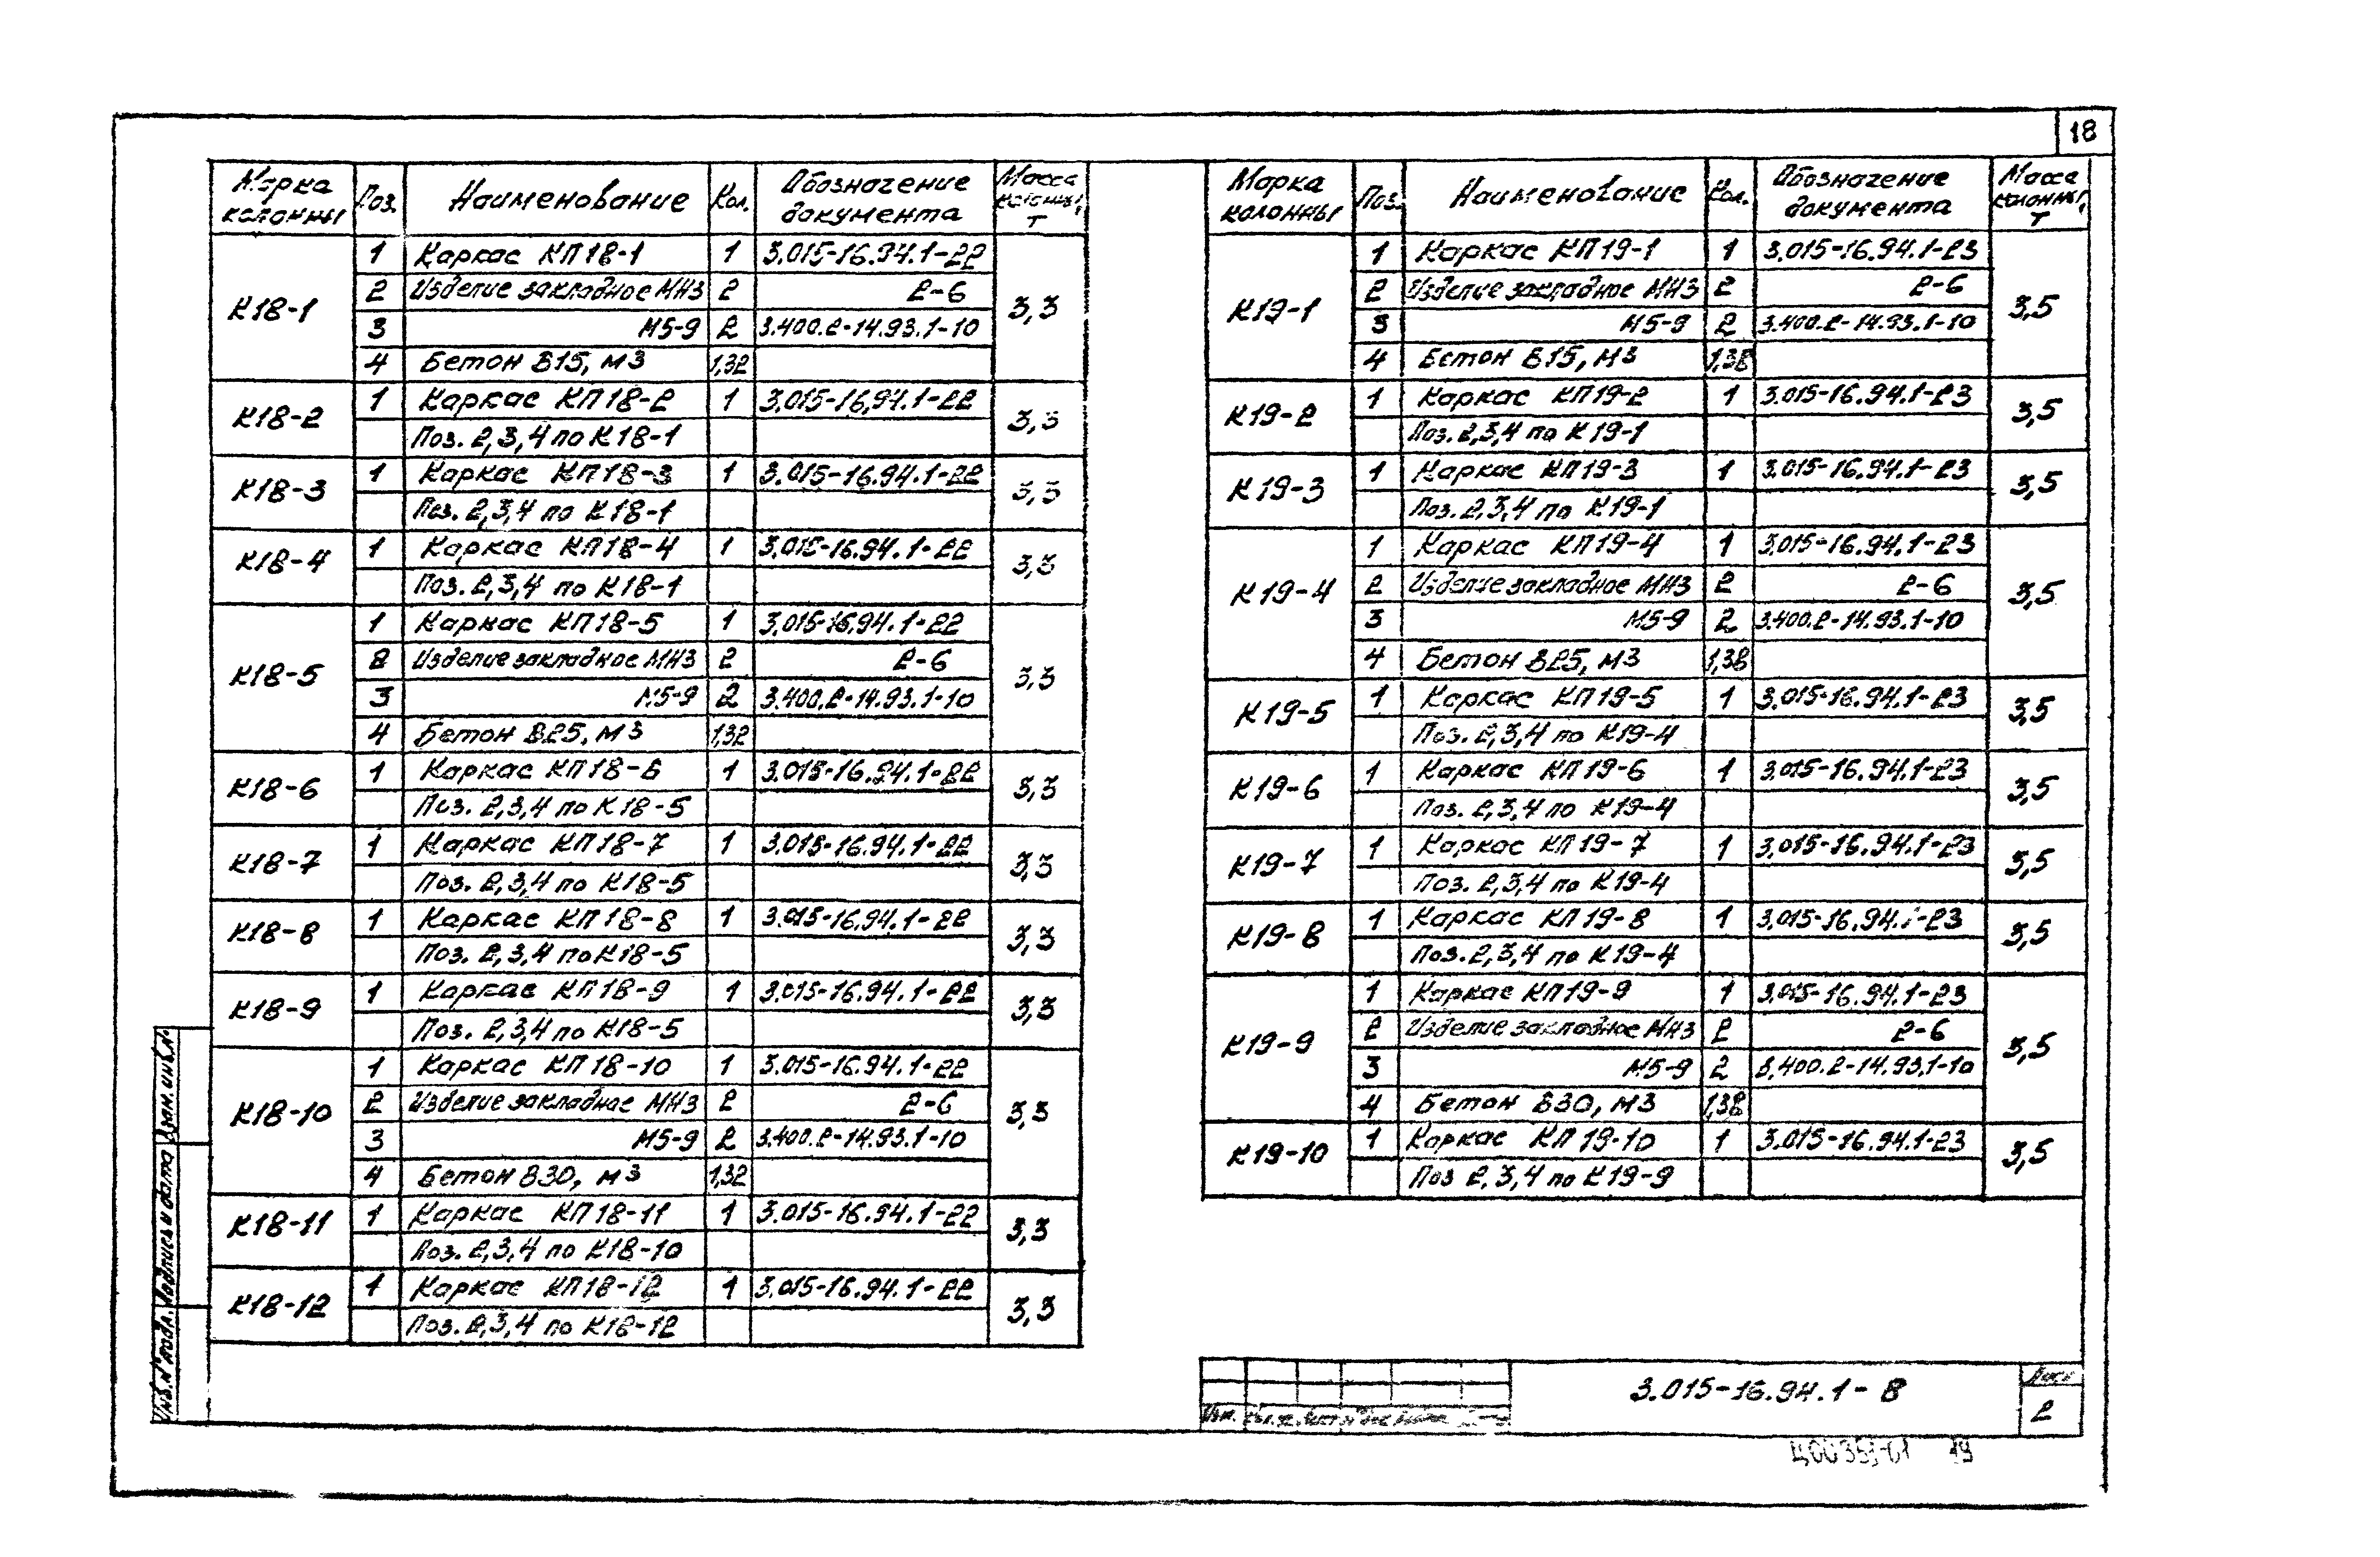 18
Марка колонны Поз. Наименование Кол. Обозначение документа Масса колонны, т
К18-1 1 Каркас КП18-1 1 3.015-16.94.1-22 3,3
2 Изделие закладное МН3 2 2-6
3 М5-9 2 3.400.2-14.93.1-10
4 Бетон В15, м3 1,32
К18-2 1 Каркас КП18-2 1 3.015-16.94.1-22 3,3
Поз. 2,3,4 по К18-1
К18-3 1 Каркас КП18-3 1 3.015-16.94.1-22 3,3
Поз. 2,3,4 по К18-1
К18-4 1 Каркас КП18-4 1 3.015-16.94.1-22 3,3
Поз. 2,3,4 по К18-1
К18-5 1 Каркас КП18-5 1 3.015-16.94.1-22 3,3
2 Изделие закладное МН3 2 2-6
3 М5-9 2 3.400.2-14.93.1-10
4 Бетон В25, м3 1,32
К18-6 1 Каркас КП18-6 1 3.015-16.94.1-22 3,3
Поз. 2,3,4 по К18-5
К18-7 1 Каркас КП18-7 1 3.015-16.94.1-22 3,3
Поз. 2,3,4 по К18-5
К18-8 1 Каркас КП18-8 1 3.015-16.94.1-22 3,3
Поз. 2,3,4 по К18-5
К18-9 1 Каркас КП18-9 1 3.015-16.94.1-22 3,3
Поз. 2,3,4 по К18-5
К18-10 1 Каркас КП18-10 1 3.015-16.94.1-22 3,3
2 Изделие закладное МН3 2 2-6
3 М5-9 2 3.400.2-14.93.1-10
4 Бетон В30, м3 1,32
К18-11 1 Каркас КП18-11 1 3.015-16.94.1-22 3,3
Поз. 2,3,4 по К18-10
К18-12 1 Каркас КП18-12 1 3.015-16.94.1-22 3,3
Поз. 2,3,4 по К18-12
Марка колонны Поз. Наименование Кол. Обозначение документа Масса колонны, т
К19-1 1 Каркас КП19-1 1 3.015-16.94.1-23 3,5
2 Изделие закладное МН3 2 2-6
3 М5-9 2 3.400.2-14.93.1-10
4 Бетон В15, м3 1,38
К19-2 1 Каркас КП19-2 1 3.015-16.94.1-23 3,5
Поз. 2,3,4 по К19-1
К19-3 1 Каркас КП19-3 1 3.015-16.94.1-23 3,5
Поз. 2,3,4 по К19-1
К19-4 1 Каркас КП19-4 1 3.015-16.94.1-23 3,5
2 Изделие закладное МН3 2 2-6
3 М5-9 2 3.400.2-14.93.1-10
4 Бетон В25, м3 1,38
К19-5 1 Каркас КП19-5 1 3.015-16.94.1-23 3,5
Поз. 2,3,4 по К19-4
К19-6 1 Каркас КП19-6 1 3.015-16.94.1-23 3,5
Поз. 2,3,4 по К19-4
К19-7 1 Каркас КП19-7 1 3.015-16.94.1-23 3,5
Поз. 2,3,4 по К19-4
К19-8 1 Каркас КП19-8 1 3.015-16.94.1-23 3,5
Поз. 2,3,4 по К19-4
К19-9 1 Каркас КП19-9 1 3.015-16.94.1-23 3,5
2 Изделие закладное МН3 2 2-6
3 М5-9 2 3.400.2-14.93.1-10
4 Бетон В30, м3 1,38
К19-10 1 Каркас КП19-10 1 3.015-16.94.1-23 3,5
Поз 2,3,4 по К19-9
Инв.№ подл. Подпись и дата Взам. инв.№
3.015-16.94.1-8
Лист
2
Изм.
19